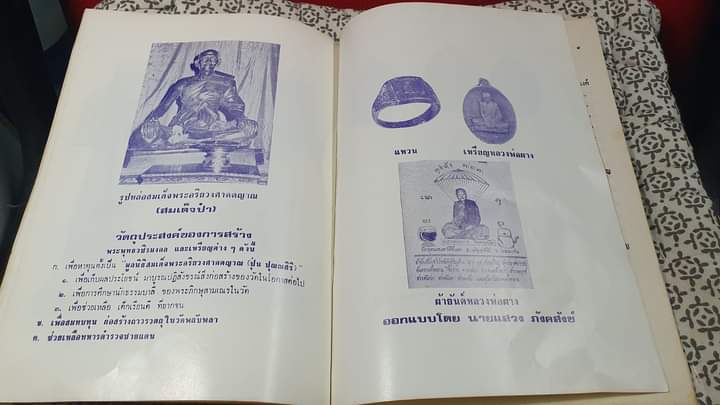 รูปหล่อสมเด็จพระอริยวงศาคตญาณ
(สมเด็จป๋า)
วัตถุประสงค์ของการสร้าง
พระพุทธวชิรมงคล และเหรียญต่าง ๆ ดังนี้
ก. เพื่อหาทุนตั้งเป็น "มูลนิธิสมเด็จพระอริยวงศาคตญาณ (ปุ่น ปุณฺณสิริ)
๑. เพื่อเก็บผลประโยชน์ มาบูรณปฏิสังขรณ์สิ่งก่อสร้างของวัดในโอกาสต่อไป
๒. เพื่อการศึกษานักธรรมบาลี ของพระภิกษุสามเณรในวัด
๓. เพื่อช่วยเหลือ เด็กเรียนดี ที่ยากจน
ข. เพื่อสมทบทุน ก่อสร้างถาวรวัตถุในวัดพลับพลา
ค. ช่วยเหลือทหารตำรวจชายแดน
แหวน
เหรียญหลวงพ่อผาง
ผ้ายันต์หลวงพ่อผาง
ออกแบบโดย นายแสวง ภังคสังข์